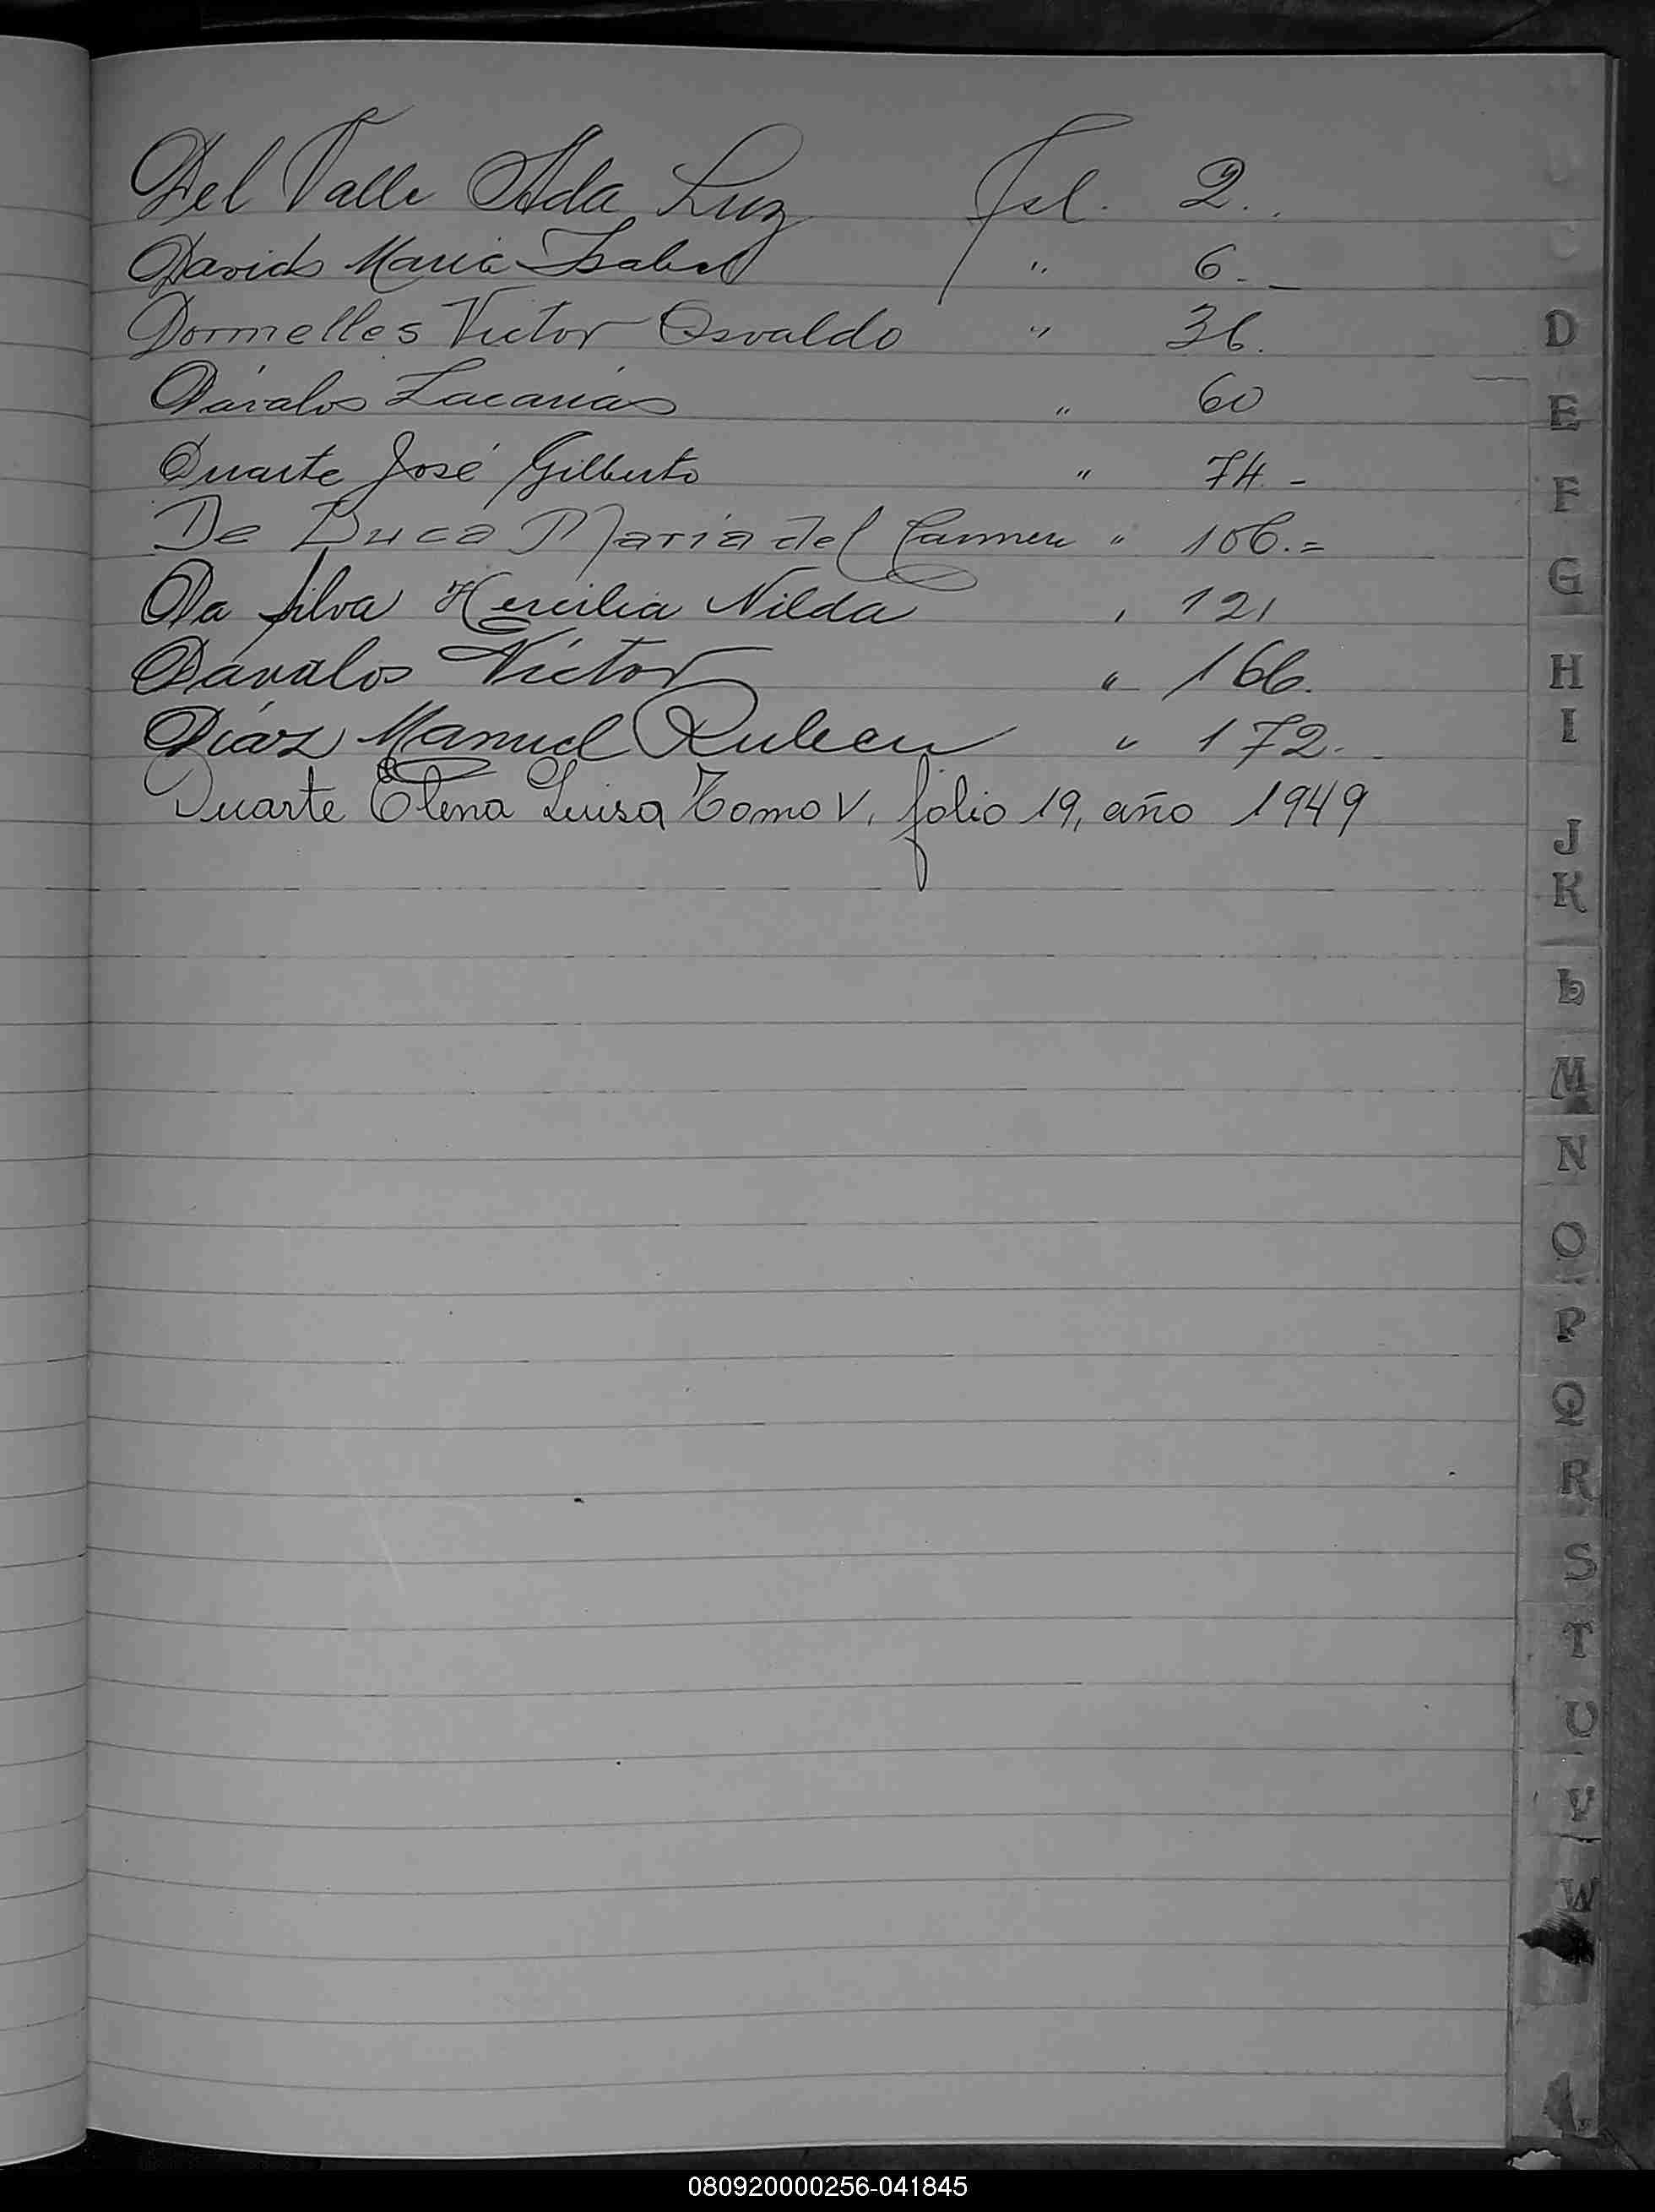 Del Valle Ada Luz Fol. 2.
Davids Maria Isabel " 6._
Dornelles Victor Osvaldo " 36.
Dávalos Zacarías " 60
Duarte José Gilberto " 74.-
De Luca María del Carmen " 106.=
Da Silva Hercilia Nilda " 121
Dávalos Víctor " 166.
Díaz Manuel Ruben " 172.-
Duarte Elena Luisa Tomo V, folio 19, año 1949
D
E
F
G
H
I
J
K
L
M
N
O
P
Q
R
S
T
U
V
W
080920000256-041845